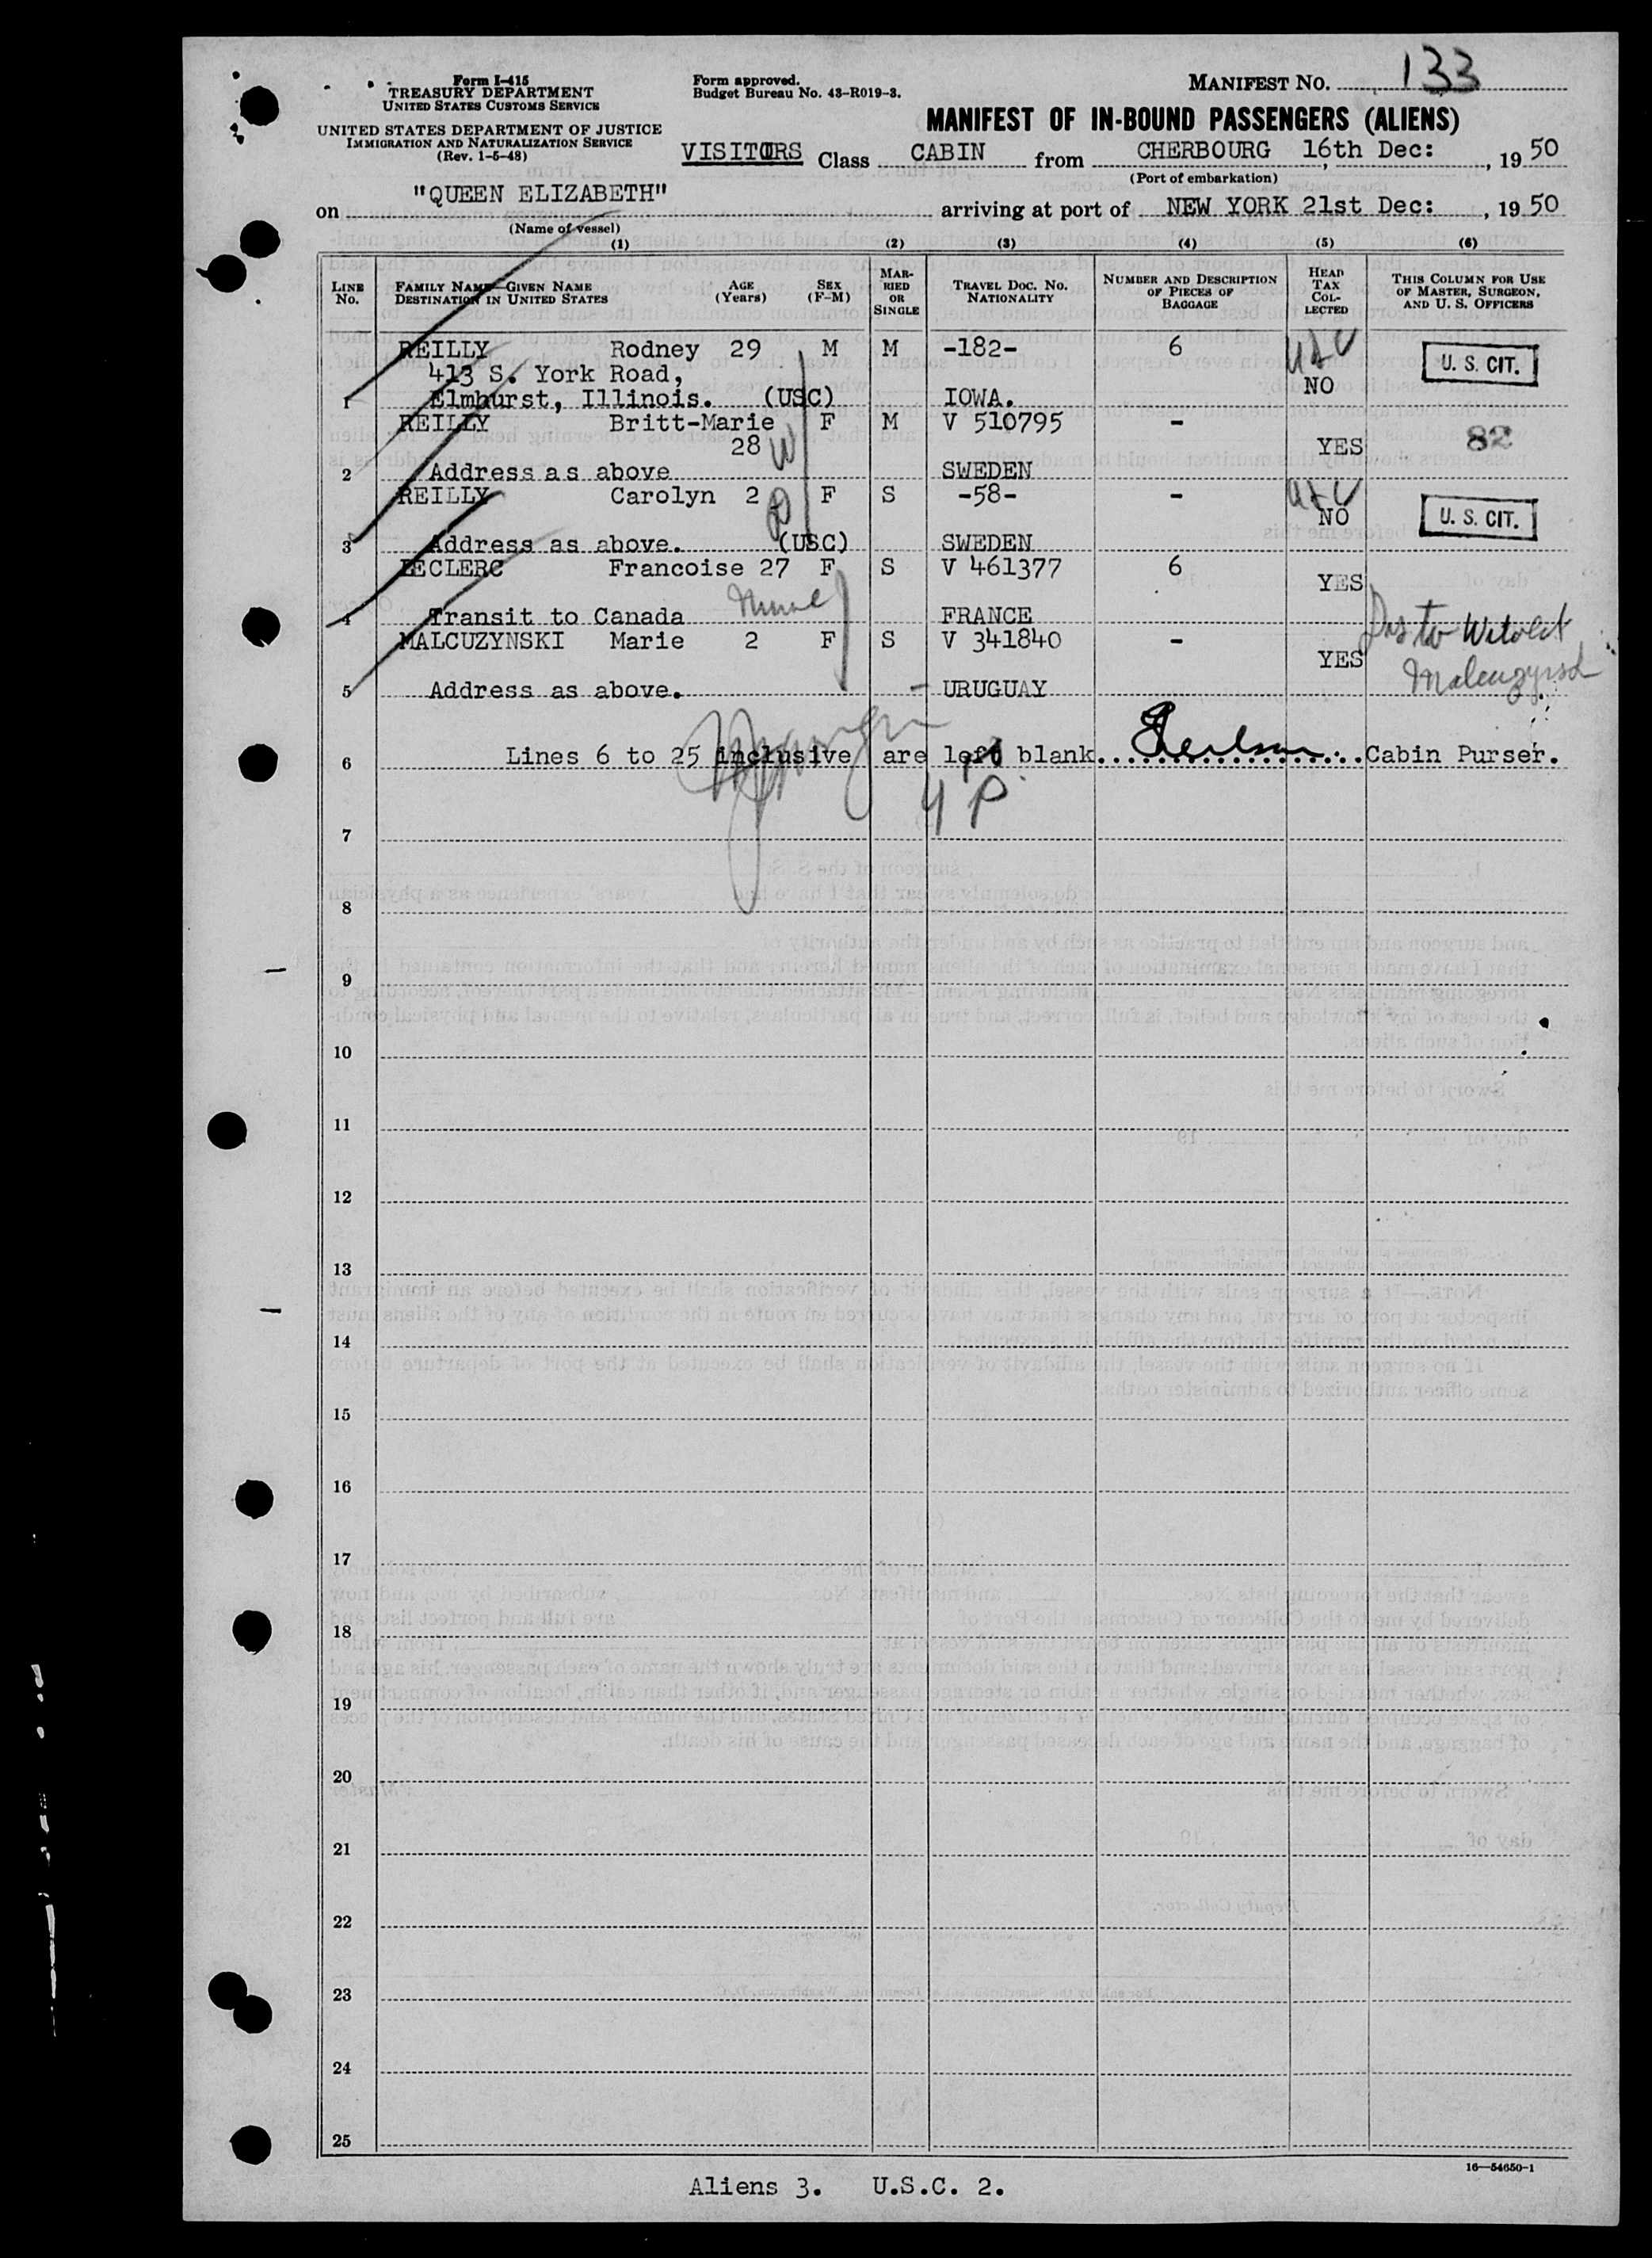 Form I-415
TREASURY DEPARTMENT
UNITED STATES CUSTOMS SERVICE
UNITED STATES DEPARTMENT OF JUSTICE
IMMIGRATION AND NATURALIZATION SERVICE
(Rev. 1-5-48)
Form approved.
Budget Bureau No. 43-R019-3.
MANIFEST NO. 133
MANIFEST OF IN-BOUND PASSENGERS (ALIENS)
VISITORS Class CABIN from CHERBOURG 16th Dec: , 19 50
(Port of embarkation)
on "QUEEN ELIZABETH" arriving at port of NEW YORK 21st Dec: , 19 50
(Name of vessel)
(1) (2) (3) (4) (5) (6)
LINE No. FAMILY NAME—GIVEN NAME DESTINATION IN UNITED STATES AGE (Years) SEX (F-M) MARRIED OR SINGLE TRAVEL DOC. NO. NATIONALITY NUMBER AND DESCRIPTION OF PIECES OF BAGGAGE HEAD TAX COLLECTED THIS COLUMN FOR USE OF MASTER, SURGEON, AND U. S. OFFICERS
REILLY Rodney 29 M M -182- 6 U. S. CIT.
413 S. York Road, NO
1 Elmhurst, Illinois. (USC) IOWA.
REILLY Britt-Marie F M V 510795 - 82
28 W YES
2 Address as above SWEDEN
REILLY Carolyn 2 F S -58- -
NO U. S. CIT.
3 Address as above. (USC) SWEDEN
LECLERC Francoise 27 F S V 461377 6
YES
4 Transit to Canada Nurse FRANCE
MALCUZYNSKI Marie 2 F S V 341840 - to Witold
YES
5 Address as above. URUGUAY
6 Lines 6 to 25 inclusive are left blank. Cabin Purser.
4 P
7
8
9
10
11
12
13
14
15
16
17
18
19
20
21
22
23
24
25
16—54650-1
Aliens 3. U.S.C. 2.